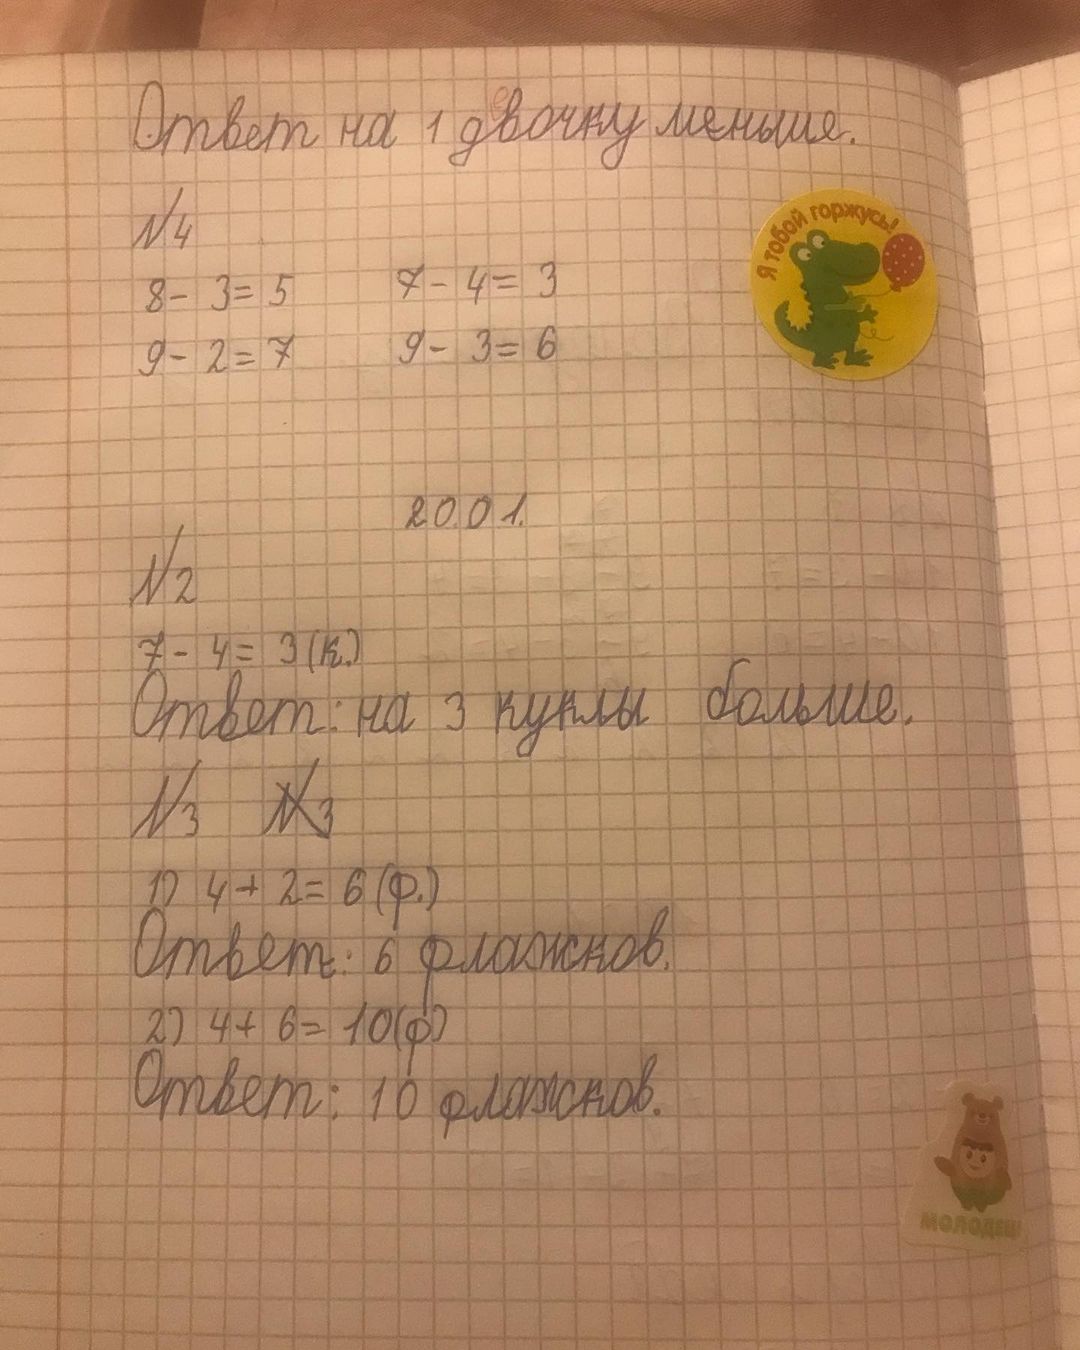 Ответ на 1 двочку меньше.
е
N4
8 - 3 = 5 7 - 4 = 3
9 - 2 = 7 9 - 3 = 6
Я тобой горжусь!
20.01.
N2
7 - 4 = 3 (к.)
Ответ: на 3 куклы больше.
N3 N3
1) 4 + 2 = 6 (ф.)
Ответ: 6 флажков.
2) 4 + 6 = 10 (ф)
Ответ: 10 флажков.
МОЛОДЕЦ!